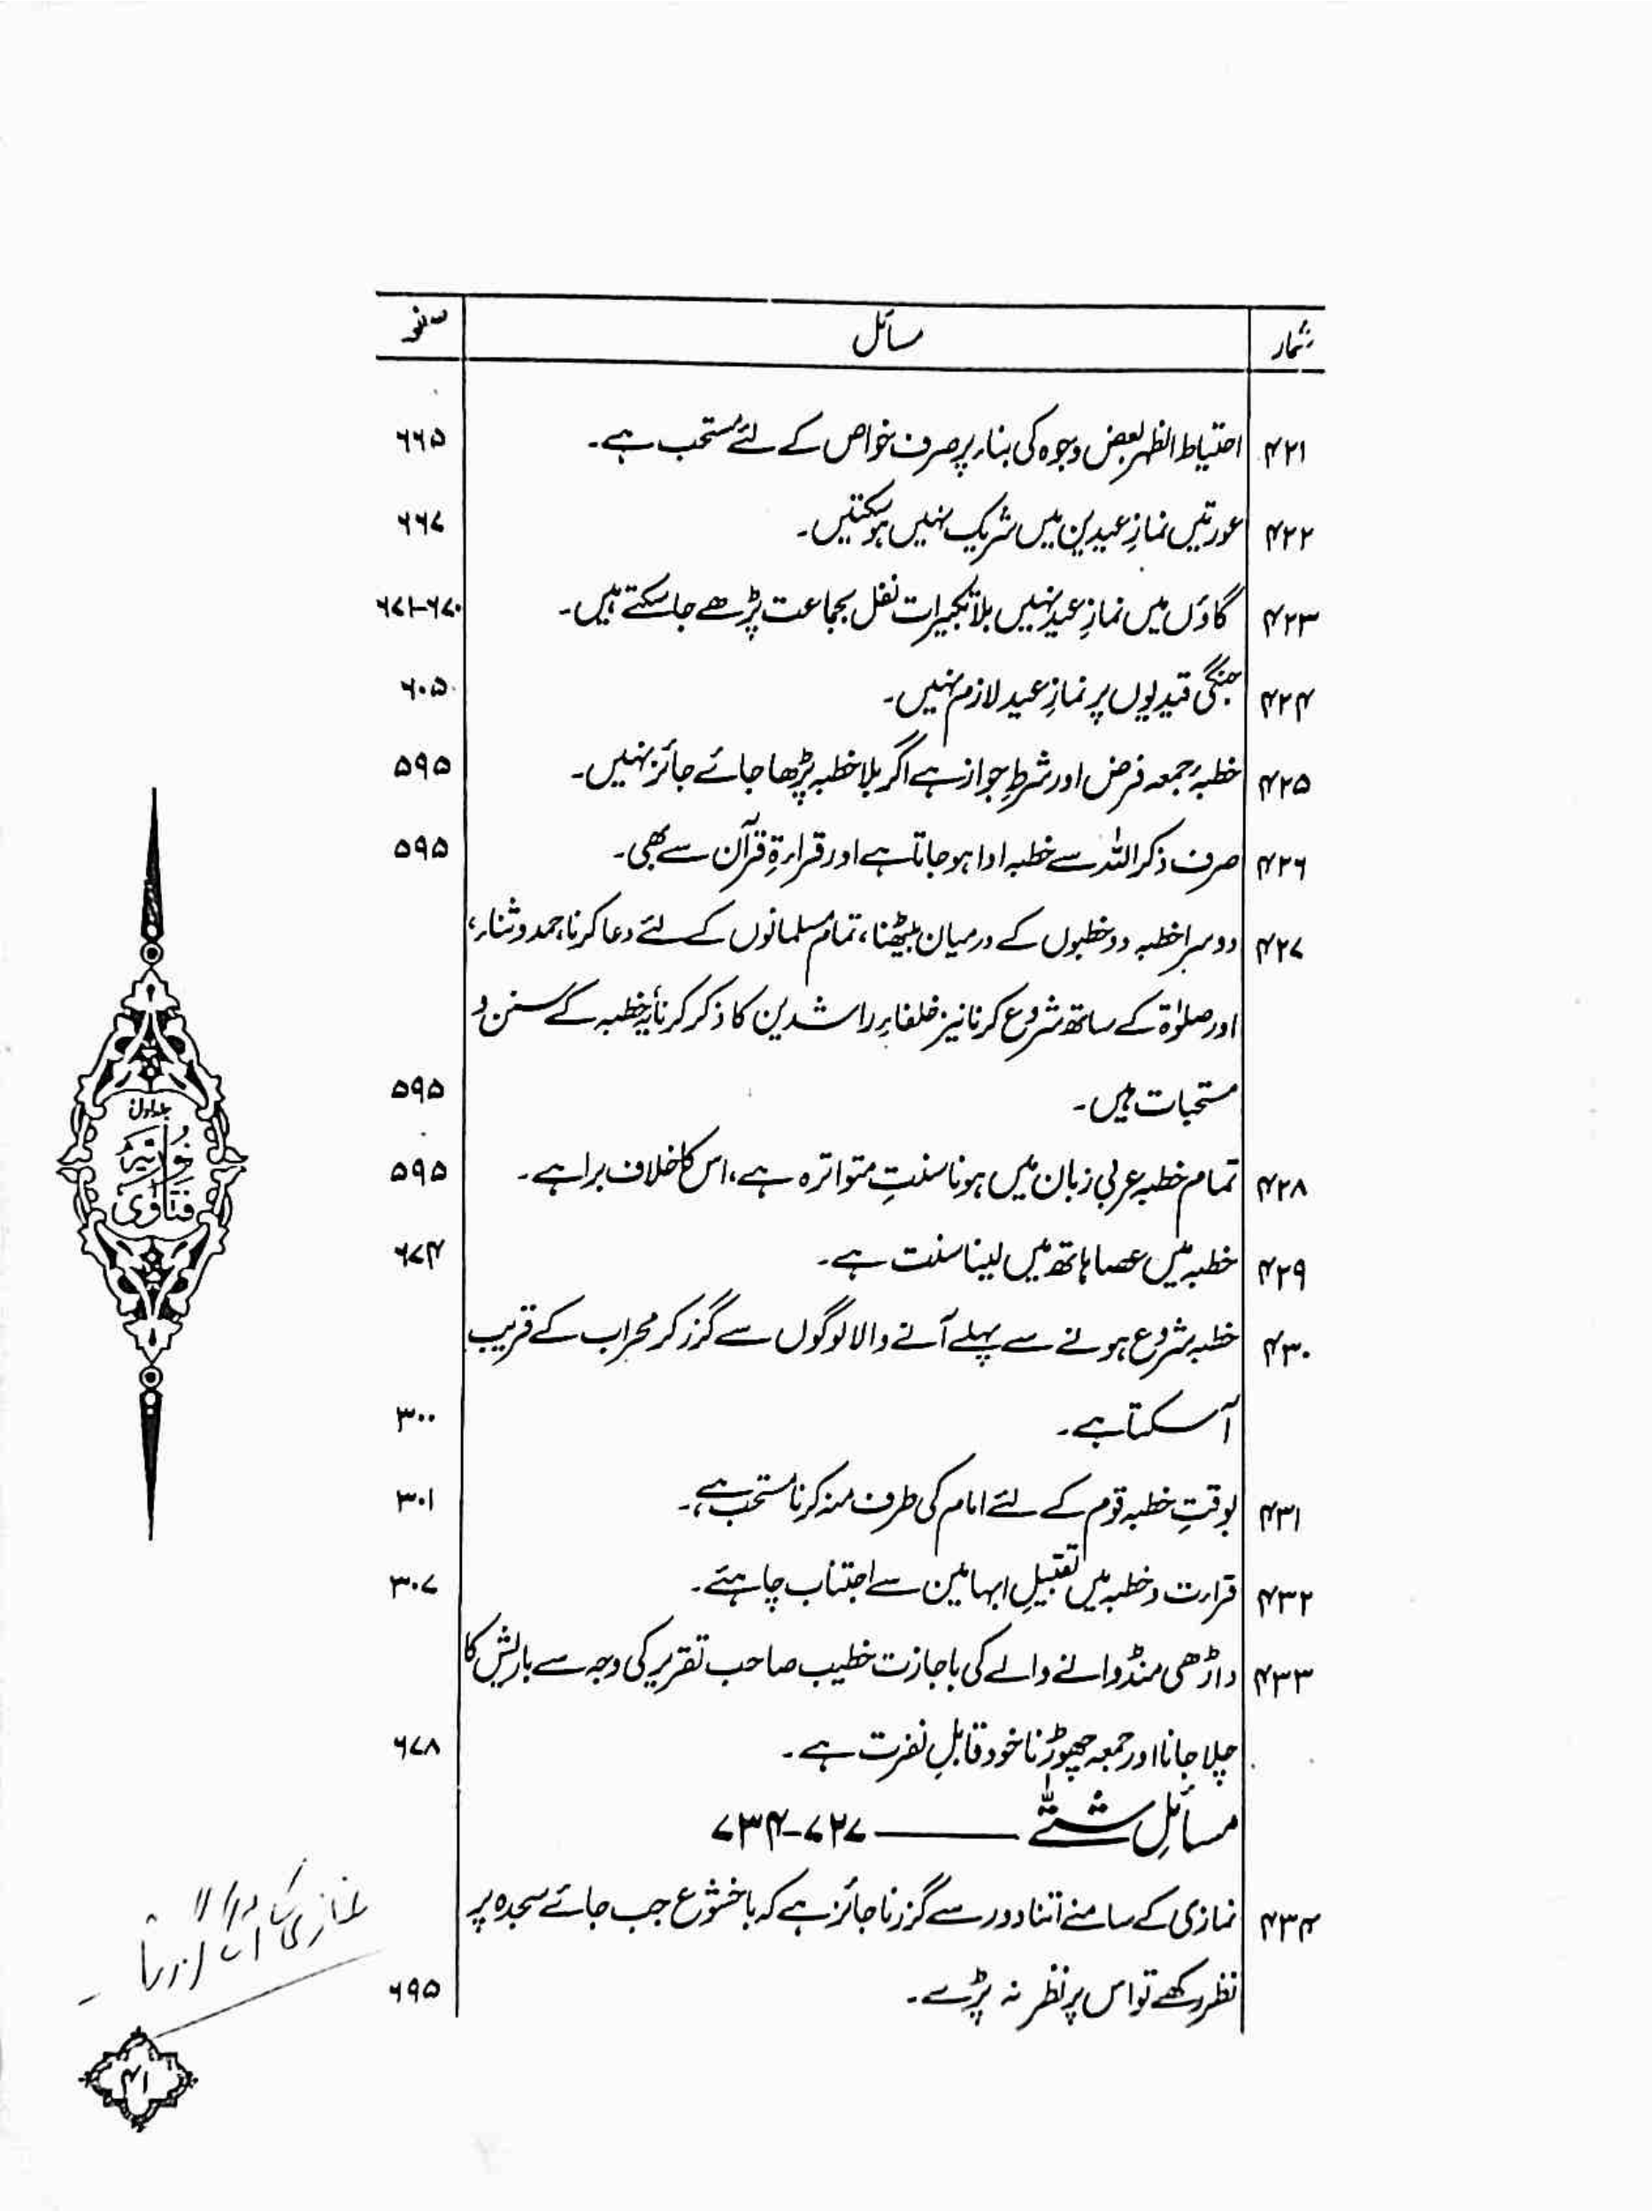 شمار مسائل صفحہ
۴۲۱ احتیاط الظہر بعض وجوہ کی بناء پر صرف خواص کے لئے مستحب ہے۔ ۶۶۵
۴۲۲ عورتیں نمازِ عیدین میں شریک نہیں ہوسکتیں۔ ۶۶۷
۴۲۳ گاؤں میں نمازِ عید نہیں بلا تکبیرات نفل بجماعت پڑھے جاسکتے ہیں۔ ۶۷۰-۶۷۱
۴۲۴ جنگی قیدیوں پر نمازِ عید لازم نہیں۔ ۶۰۵
۴۲۵ خطبۂ جمعہ فرض اور شرطِ جواز ہے اگر بلا خطبہ پڑھا جائے جائز نہیں۔ ۵۹۵
۴۲۶ صرف ذکر اللہ سے خطبہ ادا ہوجاتا ہے اور قراءۃِ قرآن سے بھی۔ ۵۹۵
۴۲۷ دوسرا خطبہ دو خطبوں کے درمیان بیٹھنا، تمام مسلمانوں کے لئے دعا کرنا، حمد و ثناء،
اور صلوٰۃ کے ساتھ شروع کرنا نیز خلفاءِ راشدین کا ذکر کرنا یہ خطبہ کے سنن و
مستحبات ہیں۔ ۵۹۵
۴۲۸ تمام خطبہ عربی زبان میں ہونا سنتِ متواترہ ہے، اس کا خلاف برا ہے۔ ۵۹۵
۴۲۹ خطبہ میں عصا ہاتھ میں لینا سنت ہے۔ ۶۷۴
۴۳۰ خطبہ شروع ہونے سے پہلے آنے والا لوگوں سے گزر کر محراب کے قریب
آسکتا ہے۔ ۳۰۰
۴۳۱ بوقتِ خطبہ قوم کے لئے امام کی طرف منہ کرنا مستحب ہے۔ ۳۰۱
۴۳۲ قراءت و خطبہ میں تقبیلِ ابہامین سے اجتناب چاہئے۔ ۳۰۷
۴۳۳ داڑھی منڈوانے والے کی باجازت خطیب صاحب تقریر کی وجہ سے باریش کا
چلا جانا اور جمعہ چھوڑنا خود قابلِ نفرت ہے۔ ۶۷۸
مسائلِ شتّٰی ——— ۷۲۷-۷۳۴
۴۳۴ نمازی کے سامنے اتنا دور سے گزرنا جائز ہے کہ باخشوع جب جائے سجدہ پر
نظر رکھے تو اس پر نظر نہ پڑے۔ ۶۹۵
جلد اول
نوریہ
فتاویٰ
۴۱